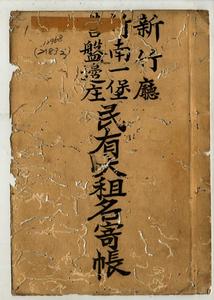 新竹廳
竹南一堡
營盤邊庄
民有大租名寄帳